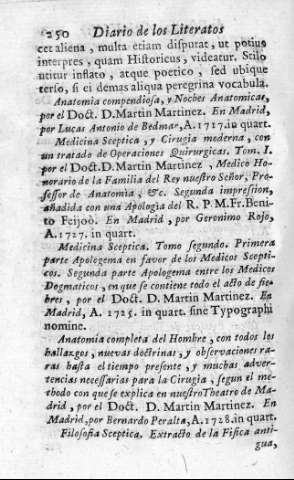 250 Diario de los Literatos
cet aliena, multa etiam disputat, ut potiùs
interpres, quam Historicus, videatur. Stilo
utitur inflato, atque poetico, sed ubique
terso, si ei demas aliqua peregrina vocabula.
Anatomia compendiosa, y Noches Anatomicas,
por el Doct. D. Martin Martinez. En Madrid,
por Lucas Antonio de Bedmar, A. 1717. in quart.
Medicina Sceptica, y Cirugia moderna, con
un tratado de Operaciones Quirurgicas. Tom. I.
por el Doct. D. Martin Martinez, Medico Ho-
norario de la Familia del Rey nuestro Señor, Pro-
fessor de Anatomia, &c. Segunda impression,
añadida con una Apologìa del R. P. M. Fr. Beni-
to Feijoò. En Madrid, por Geronimo Rojo,
A. 1727. in quart.
Medicina Sceptica. Tomo segundo. Primera
parte Apologema en favor de los Medicos Scepti-
cos. Segunda parte Apologema entre los Medicos
Dogmaticos, en que se contiene todo el acto de fie-
bres, por el Doct. D. Martin Martinez. En
Madrid, A. 1725. in quart. sine Typographi
nomine.
Anatomia completa del Hombre, con todos los
hallazgos, nuevas doctrinas, y observaciones ra-
ras hasta el tiempo presente, y muchas adver-
tencias necessarias para la Cirugia, segun el me-
thodo con que se explica en nuestro Theatro de Ma-
drid, por el Doct. D. Martin Martinez. En
Madrid, por Bernardo Peralta, A. 1728. in quart.
Filosofia Sceptica. Extracto de la Fisica anti-
gua,